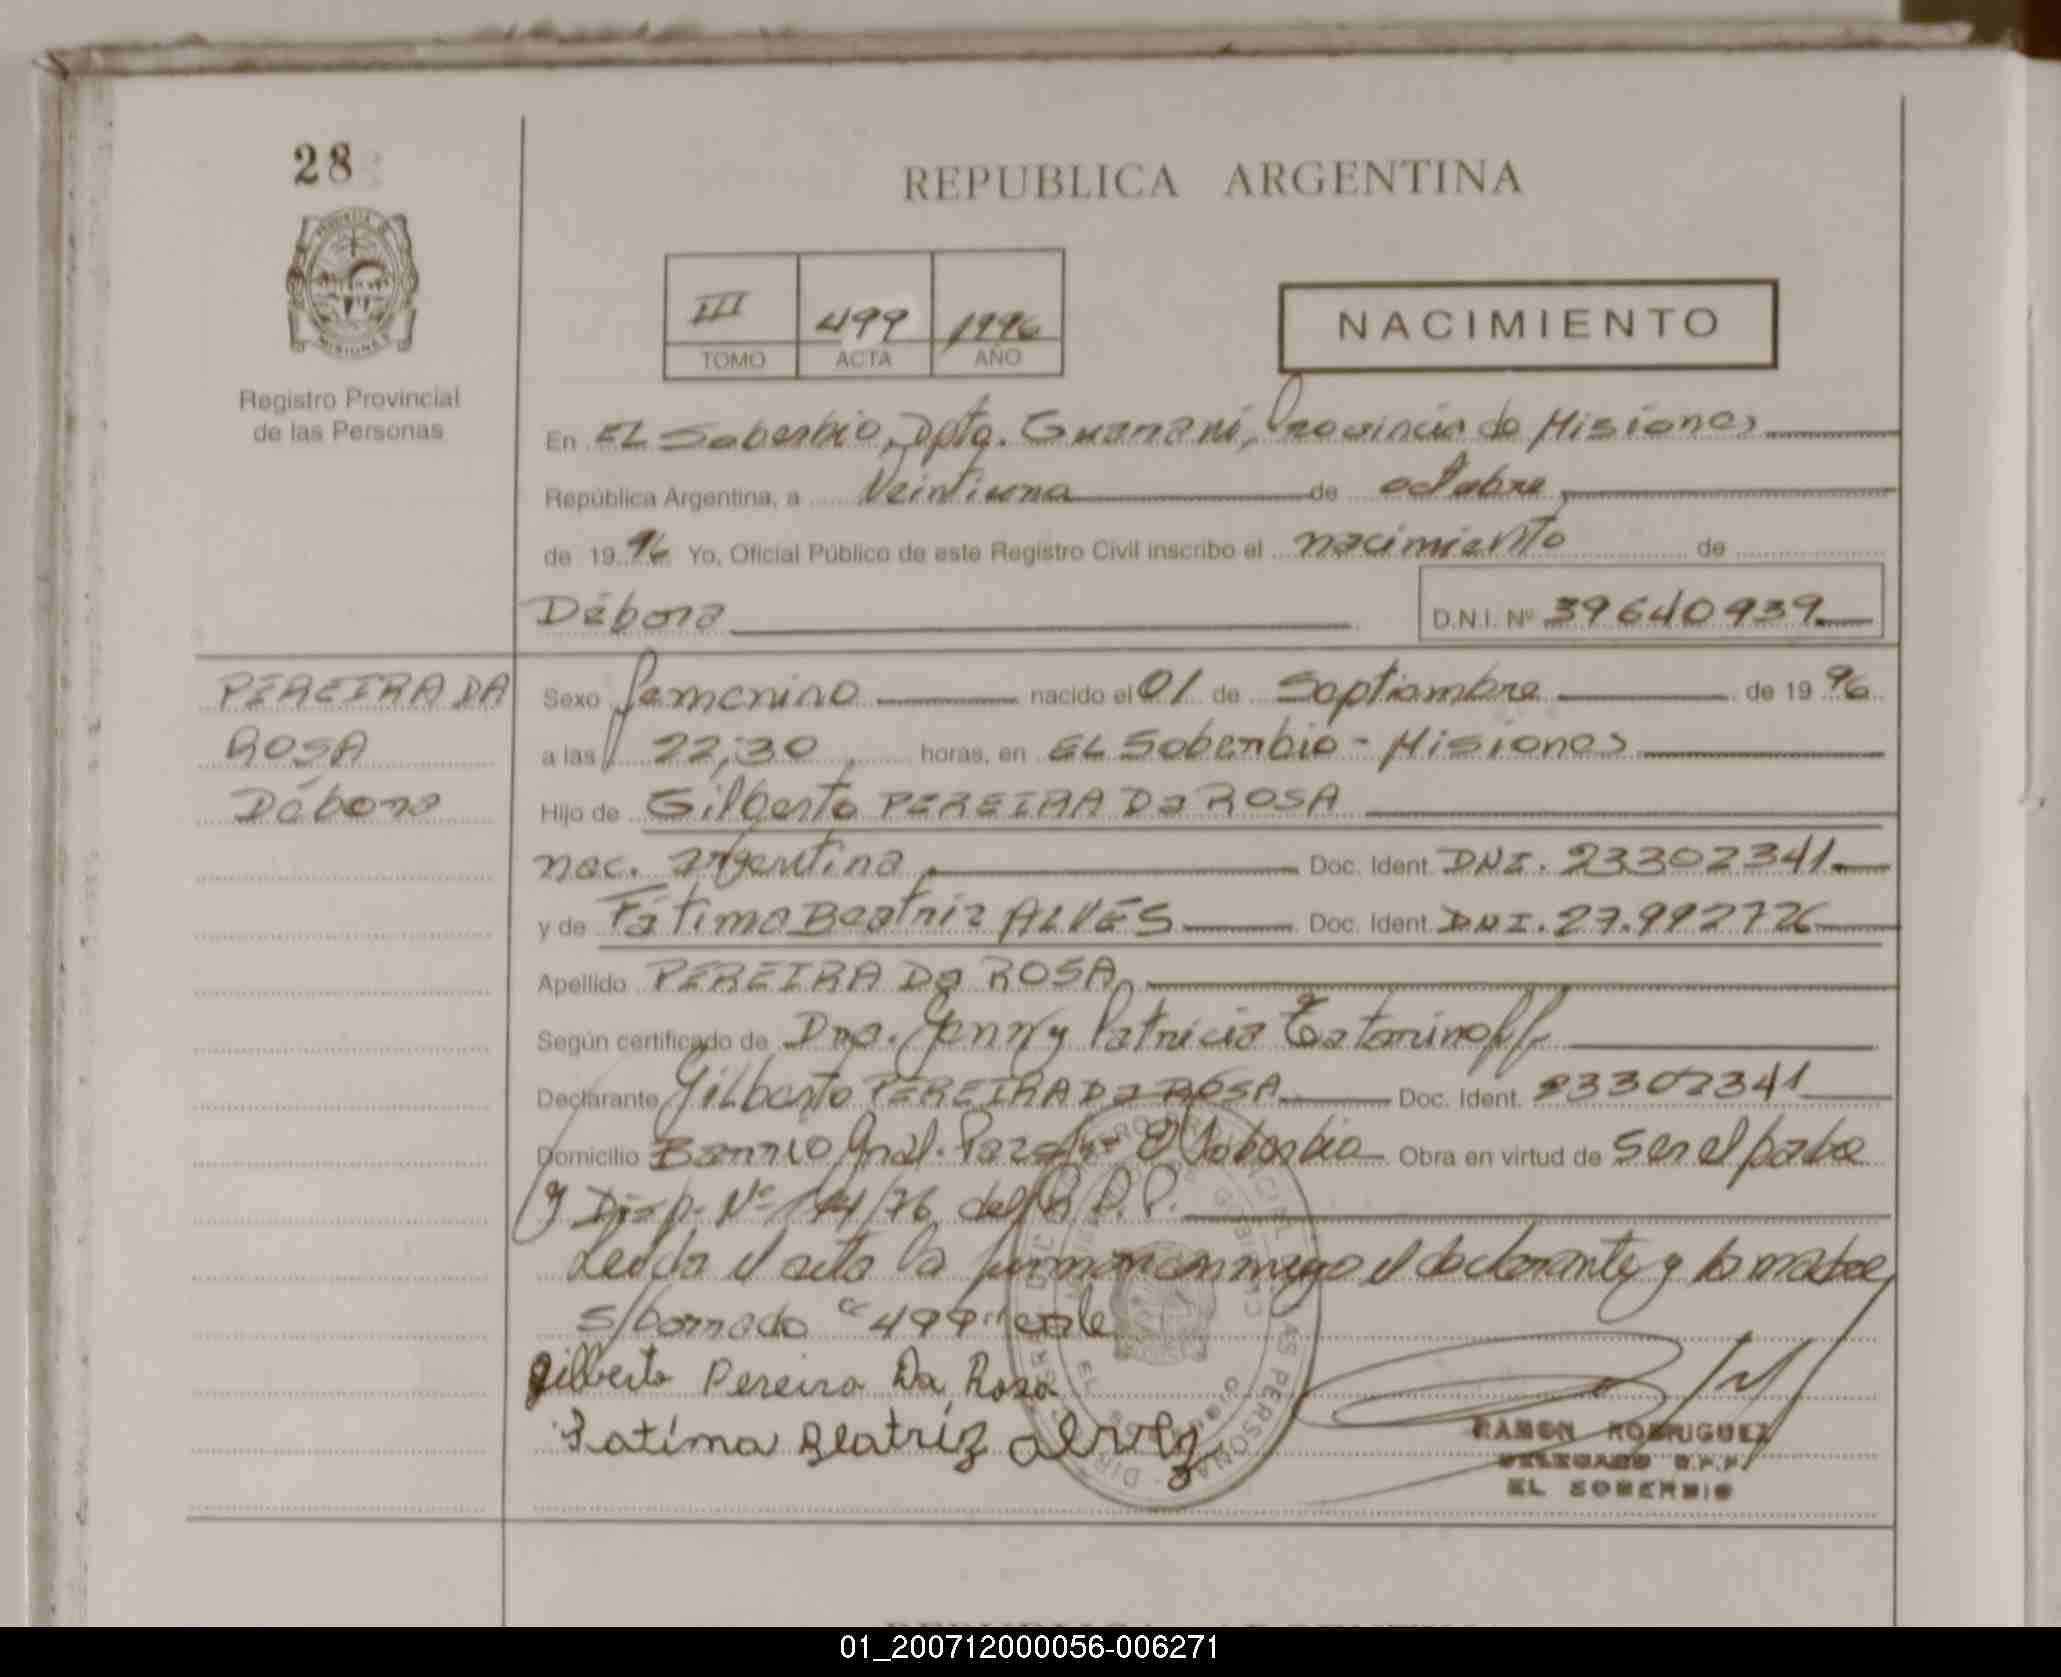 28
REPUBLICA ARGENTINA
III 499 1996
TOMO ACTA AÑO
NACIMIENTO
Registro Provincial
de las Personas
En EL Soberbio, Dpto. Guaraní, Provincia de Misiones
República Argentina, a Veintiuno de octubre
de 1996 Yo, Oficial Público de este Registro Civil inscribo el nacimiento de
Débora D.N.I. Nº 39640939
PEREIRA DA
ROSA
Débora
Sexo femenino nacido el 01 de Septiembre de 1996
a las 22,30 horas, en EL Soberbio - Misiones
Hijo de Gilberto PEREIRA Da ROSA
nac. argentina Doc. Ident. DNI. 23302341
y de Fátima Beatriz ALVES Doc. Ident. DNI. 27.992726
Apellido PEREIRA Da ROSA
Según certificado de Dra. Jenny Patricia
Declarante Gilberto PEREIRA Da ROSA Doc. Ident. 23302341
Domicilio Barrio Gral. Paz El Soberbio Obra en virtud de ser el padre
y Disp. Nº 144/76 del R.P.P.
Leída el acta la firman conmigo el declarante y la madre
s/borrado "499" vale
Gilberto Pereira Da Rosa
Fatima Beatriz
RAMON RODRIGUEZ
DELEGADO R.P.P.
EL SOBERBIO
01_200712000056-006271